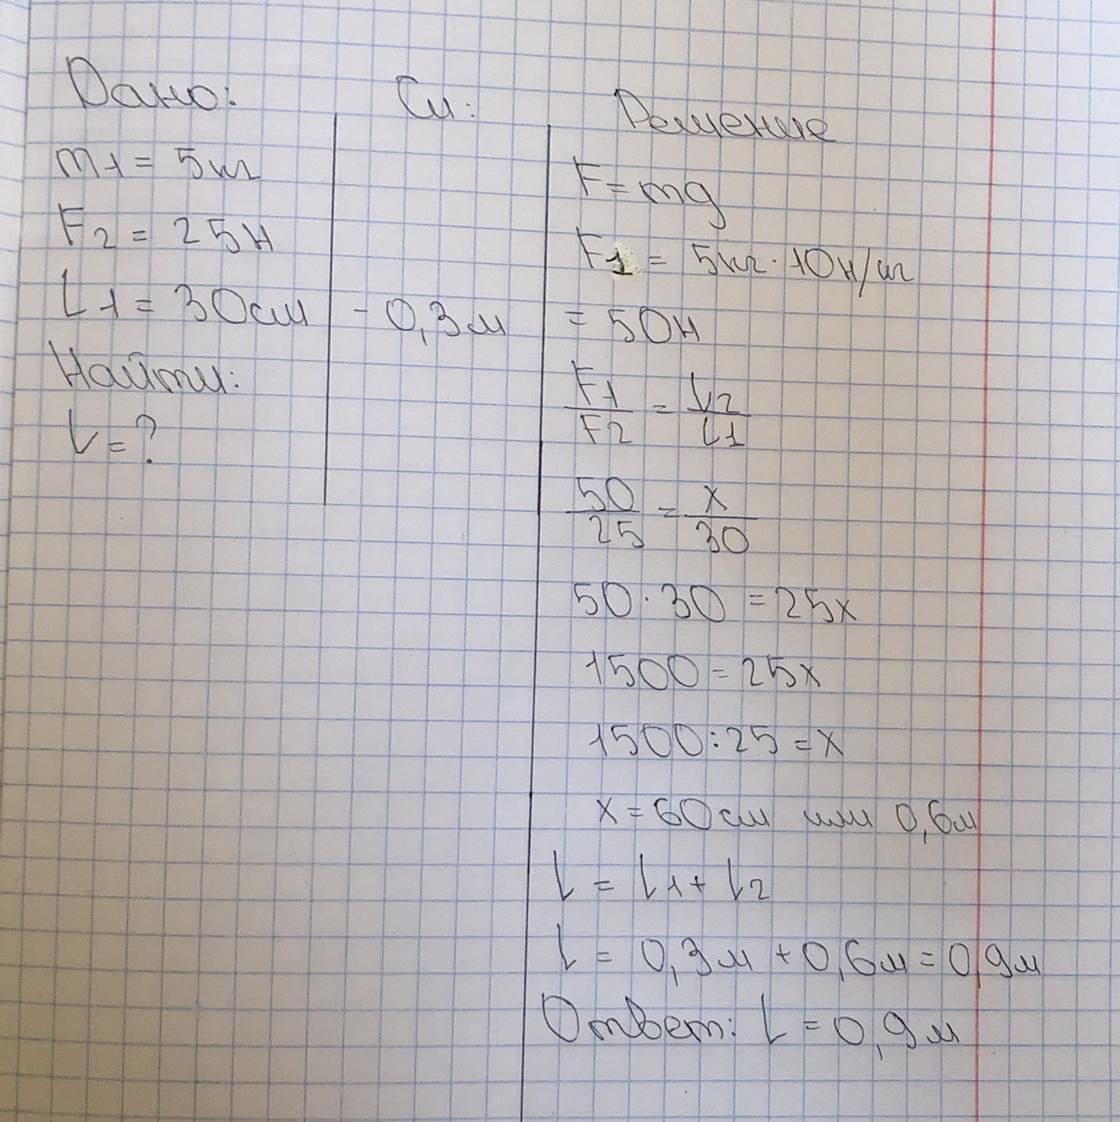 Дано:
Си:
Решение
m1 = 5кг
F2 = 25Н
L1 = 30см - 0,3м
Найти:
L = ?
F = mg
F1 = 5кг · 10Н/кг
= 50Н
F1/F2 = L2/L1
50/25 = x/30
50 · 30 = 25x
1500 = 25x
1500 : 25 = x
x = 60см или 0,6м
L = L1 + L2
L = 0,3м + 0,6м = 0,9м
Ответ: L = 0,9м